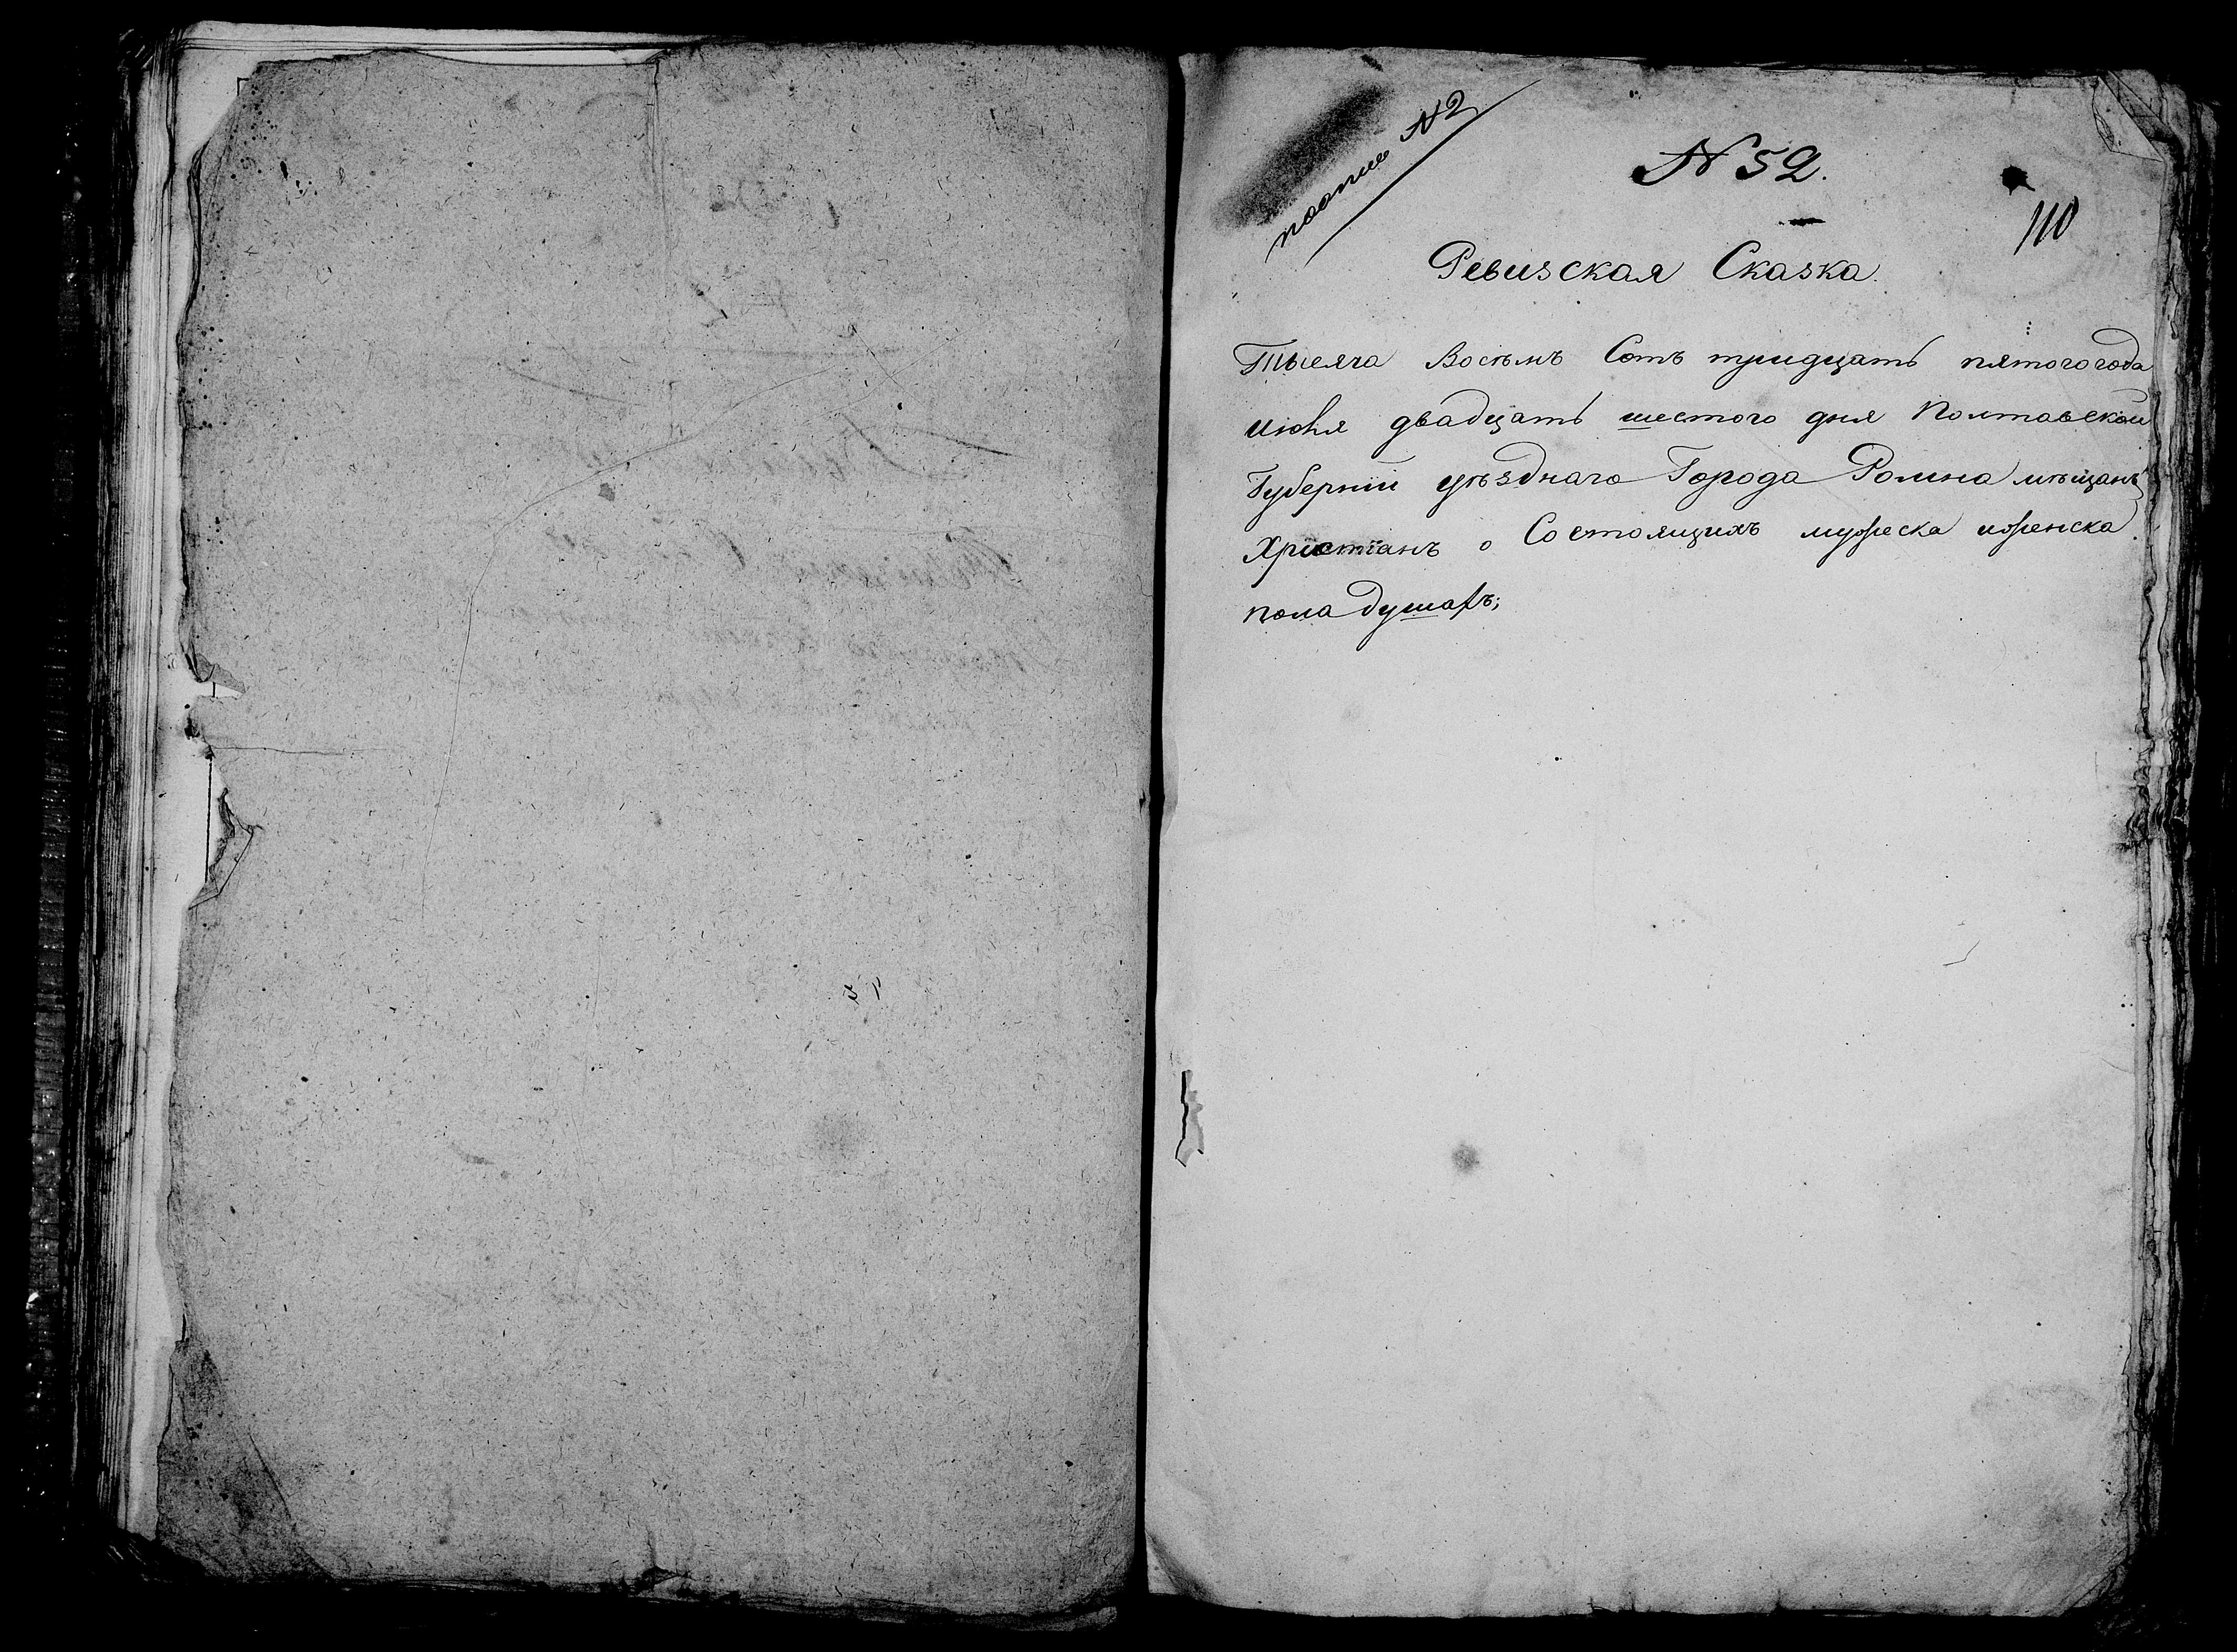 № 2
№ 52.
110
Ревизская Сказка.
Тысяча Восѣмъ Сотъ тридцать пятого года
июня двадцать шестого дня Полтавской
Губернiи уѣзднаго Города Ромна мѣщанъ
Христiанъ о Состоящихъ мужеска иженска
пола душахъ;